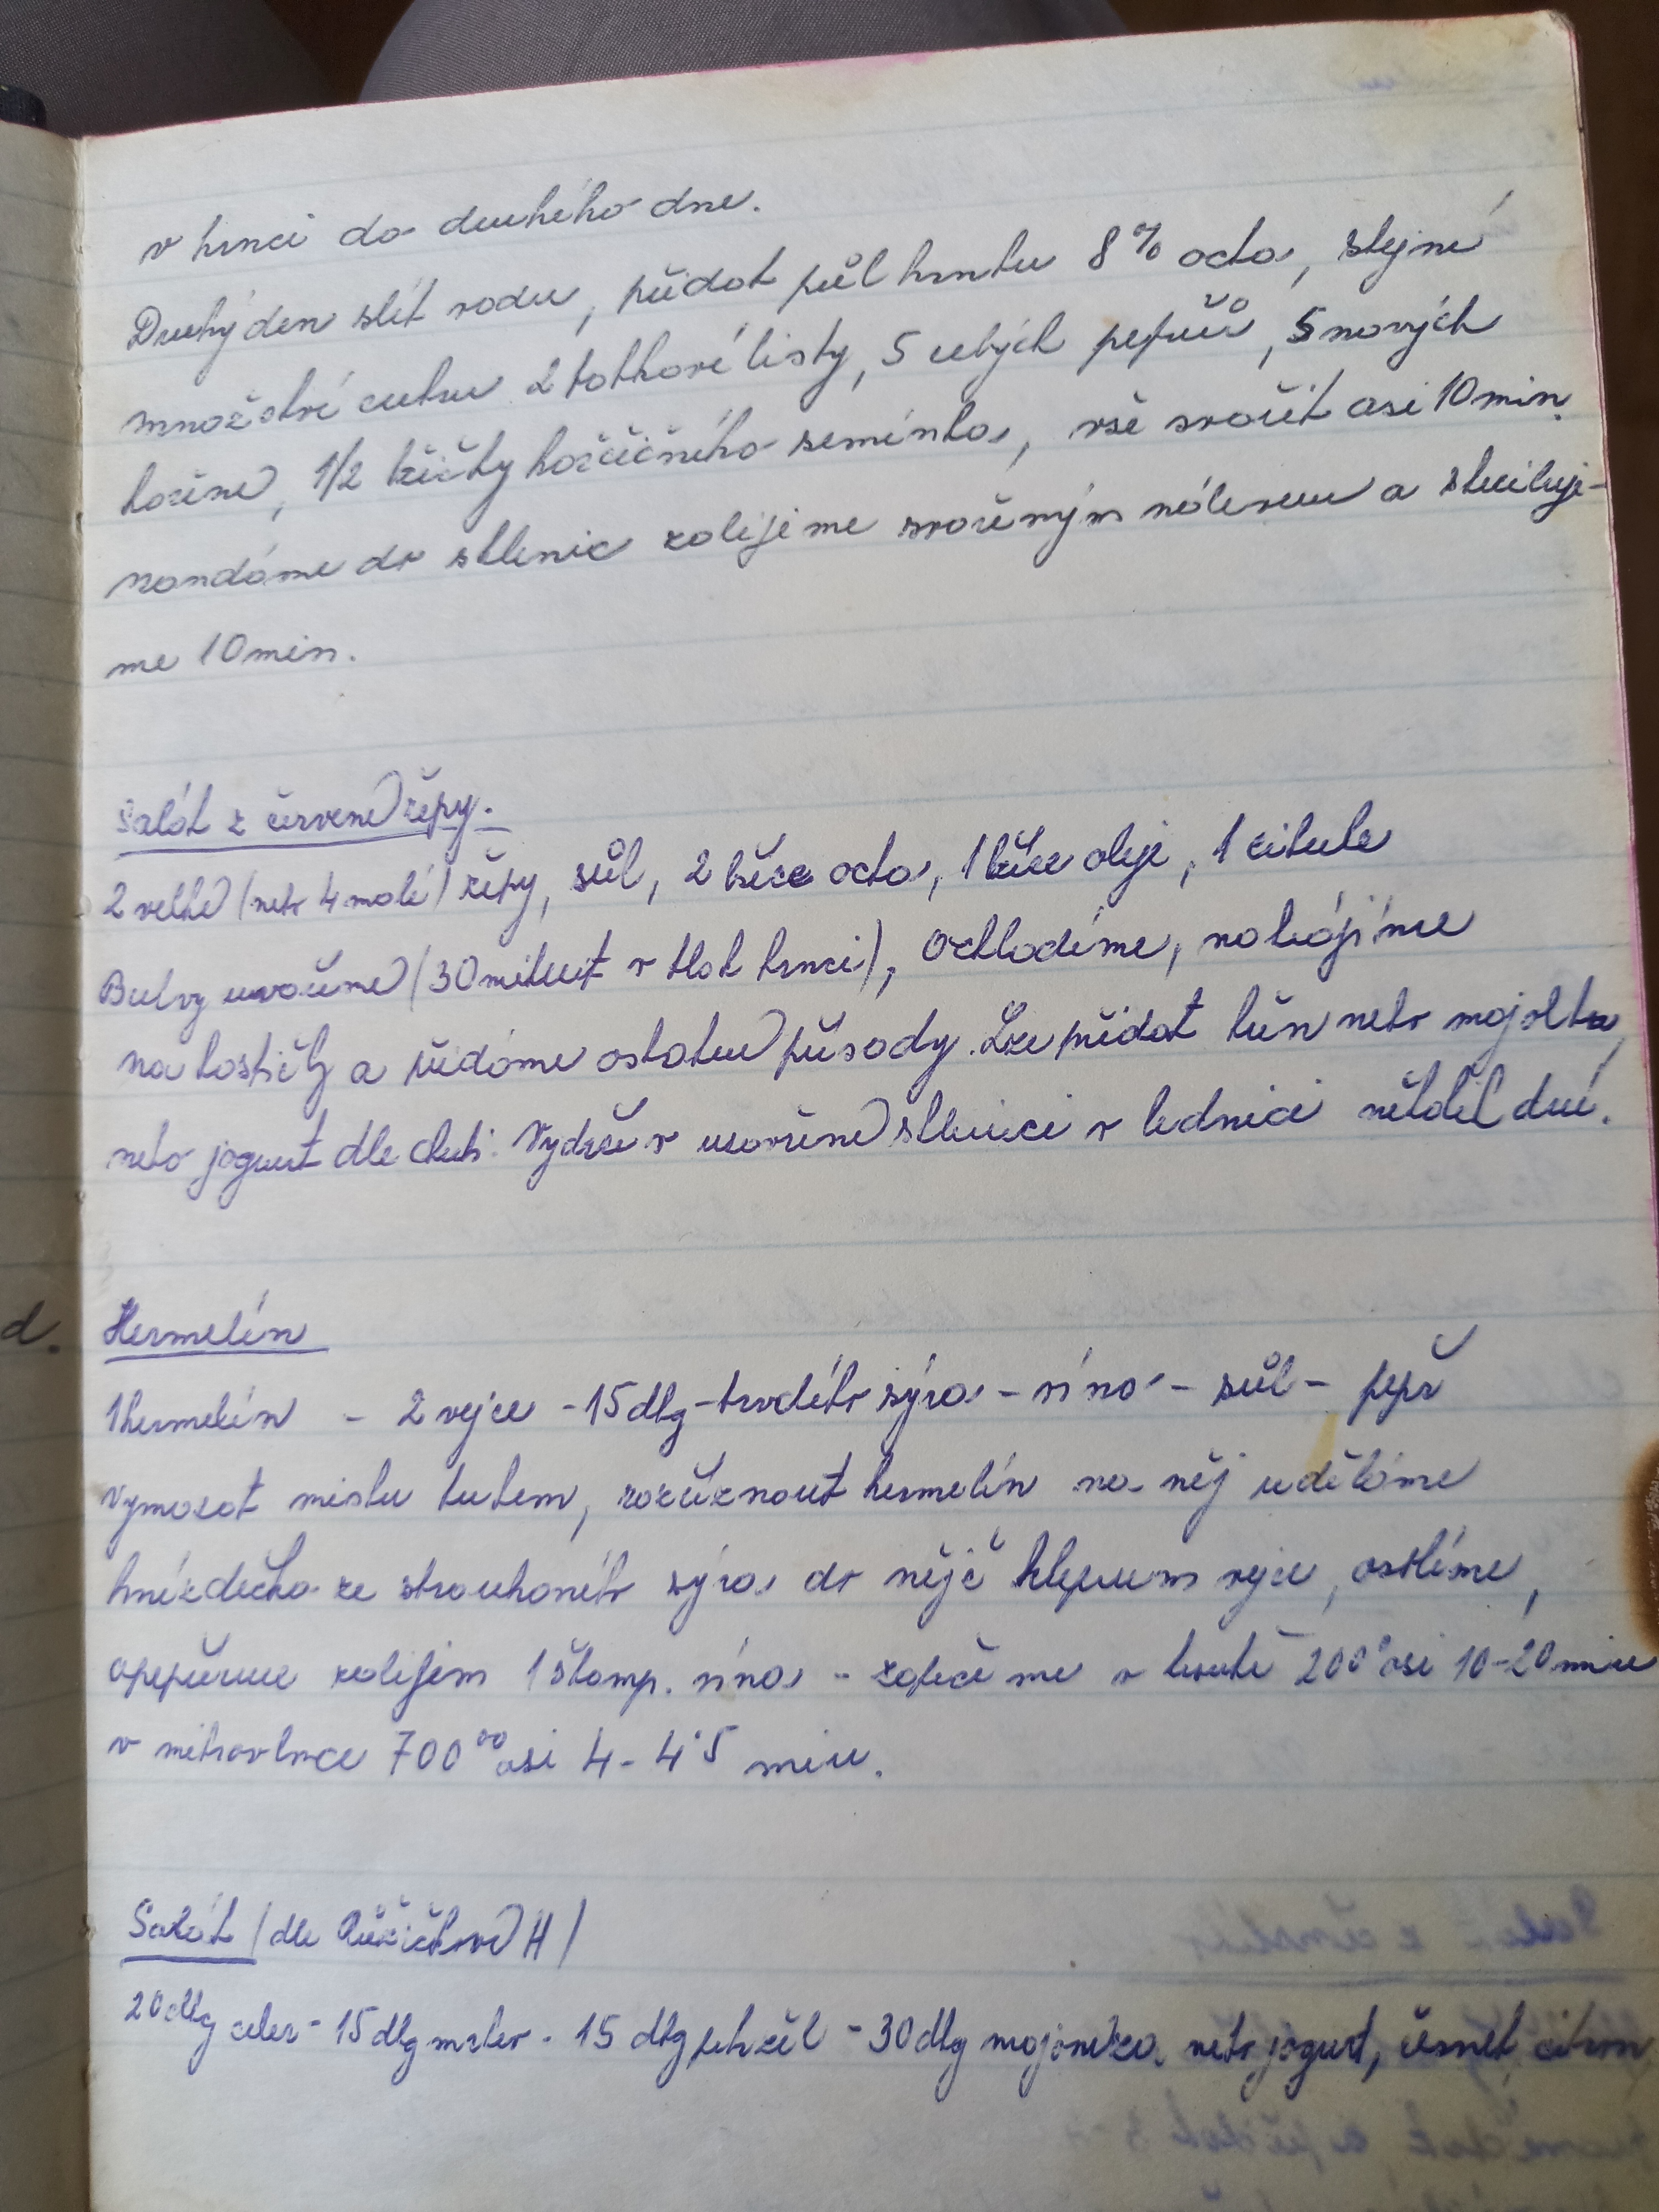 v hrnci do druhého dne.
Druhý den slít vodu, přidat půl hrntu 8% octa, stejné
množství cukru 2 bobkové listy, 5 celých pepřů, 5 nových
koření, 1/2 lžičky hořčičného semínka, vše svařit asi 10 min.
nandáme do sklenic zalijeme svařeným nálevem a steriluje-
me 10 min.
Salát z červené řepy.
2 velké (nebo 4 malé) řepy, sůl, 2 lžíce octa, 1 lžíce oleje, 1 cibule
Bulvy uvaříme (30 minut v tlak hrnci), Ochladíme, nakrájíme
na kostičky a přidáme ostatní přísady. Lze přidat křen nebo majolku,
nebo jogurt dle chuti. Vydrží v uzavřené sklenici v lednici několik dní.
d.
Hermelín
1 hermelín - 2 vejce - 15 dkg - tvrdého sýra - vína - sůl - pepř
Vymazat misku tukem, rozříznout hermelín na něj uděláme
hnízdečko ze strouhaného sýra do něj klepnem vejce, osolíme,
opepříme zalijem 1 štamp. vína - zapečeme v troubě 200° asi 10-20 min
v mikrovlnce 700°° asi 4-4·5 min.
Salát (dle Růžičkové H)
20 dkg celer - 15 dkg mrkev - 15 dkg pek zél - 30 dkg majonéza nebo jogurt, česnek, citron